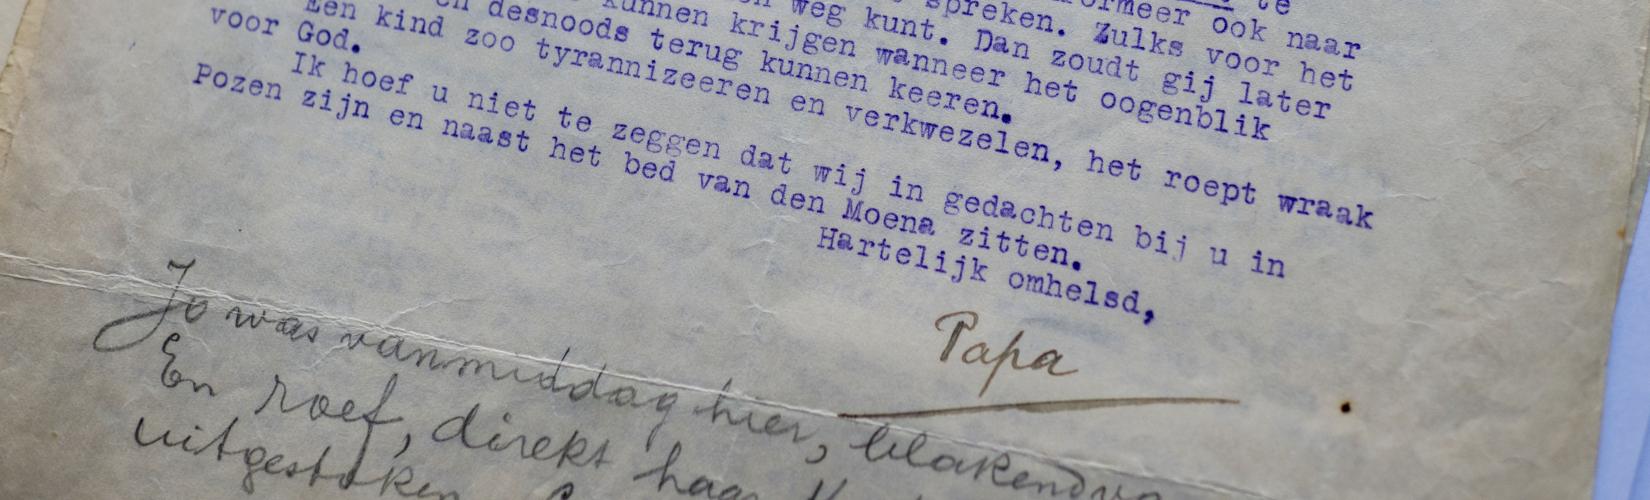 te
ook naar
spreken. Zulks voor het
weg kunt. Dan zoudt gij later
kunnen krijgen wanneer het oogenblik
en desnoods terug kunnen keeren.
Een kind zoo tyrannizeeren en verkwezelen, het roept wraak
voor God.
Ik hoef u niet te zeggen dat wij in gedachten bij u in
Pozen zijn en naast het bed van den Moena zitten.
Hartelijk omhelsd,
Papa
Jo was vanmiddag hier,
En roef, direkt haar
uitgestoken